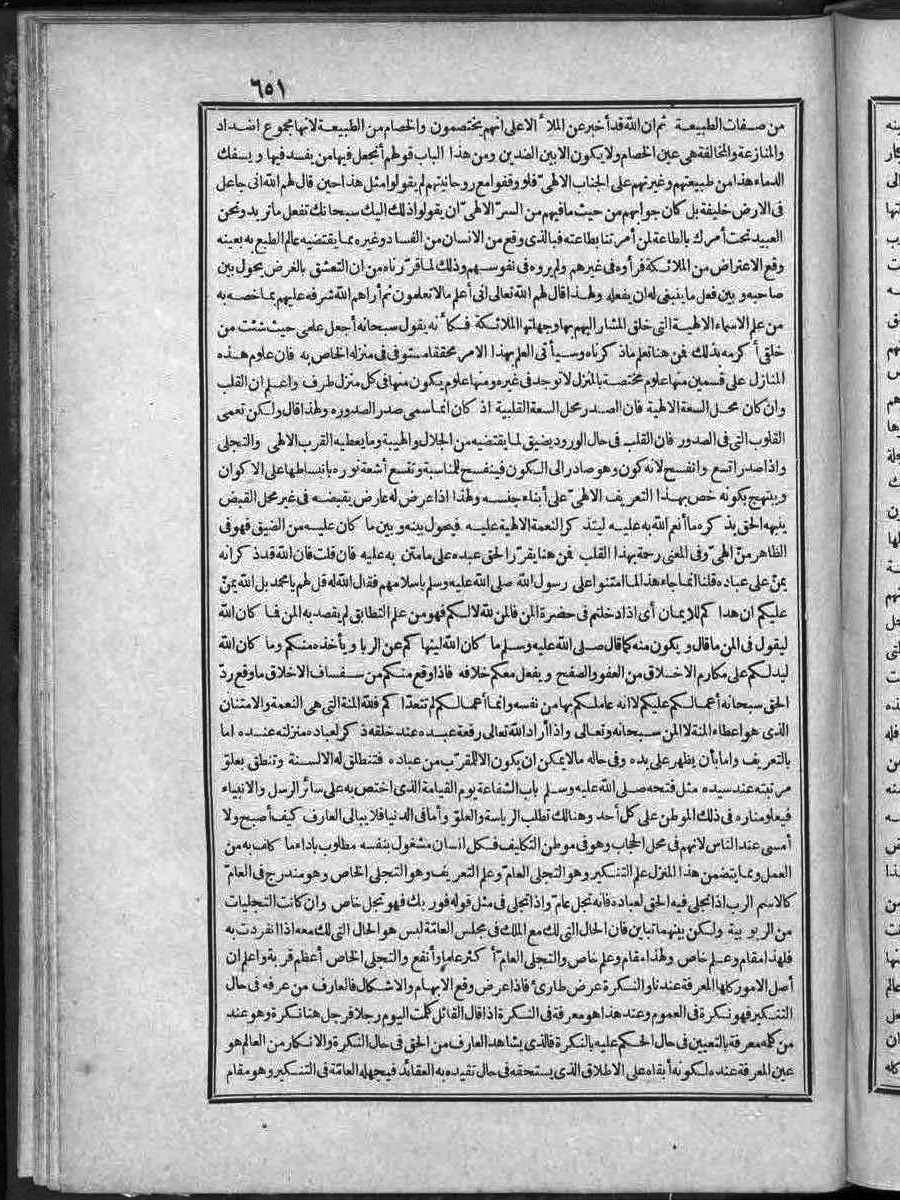 ٦٥١
من صفات الطبيعة ثم ان الله قد أخبر عن الملأ الاعلى انهم يختصمون والخصام من الطبيعة لانها مجموع اضداد
والمنازعة والمخالفة هى عين الخصام ولا يكون الا بين الضدين ومن هذا الباب قولهم أتجعل فيها من يفسد فيها ويسفك
الدماء هذا من طبيعتهم وغيرتهم على الجناب الالهىّ فلو وقفوا مع روحانيتهم لم يقولوا مثل هذا حين قال لهم الله انى جاعل
فى الارض خليفة بل كان جوابهم من حيث ما فيهم من السرّ الالهىّ ان يقولوا ذلك اليك سبحانك تفعل ما تريد ونحن
العبيد تحت أمرك بالطاعة لمن أمرتنا بطاعته فبالذى وقع من الانسان من الفساد وغيره مما يقتضيه عالم الطبع به بعينه
وقع الاعتراض من الملائكة فرأوه فى غيرهم ولم يروه فى نفوسهم وذلك لما قرّرناه من ان التعشق بالغرض يحول بين
صاحبه وبين فعل ما ينبغى له ان يفعله ولهذا قال لهم الله تعالى انى أعلم ما لا تعلمون ثم أراهم الله شرفه عليهم بما خصه به
من علم الاسماء الالهية التى خلق المشار اليهم بها وجهلتها الملائكة فكأنه يقول سبحانه أجعل علمى حيث شئت من
خلقى أكرمه بذلك فمن هنا تعلم ما ذكرناه وسيأتى العلم بهذا الامر محققا مستوفى فى منزله الخاص به فان علوم هذه
المنازل على قسمين منها علوم مختصة بالمنزل لا توجد فى غيره ومنها علوم يكون منها فى كل منزل طرف واعلم ان القلب
وان كان محل السعة الالهية فان الصدر محل السعة القلبية اذ كان انما سمى صدر الصدوره ولهذا قال ولكن تعمى
القلوب التى فى الصدور فان القلب فى حال الورود يضيق لما يقتضيه من الجلال والهيبة وما يعطيه القرب الالهى والتجلى
واذا صدر اتسع وانفسح لانه كون وهو صادر الى الكون فينفسح للمناسبة وتتسع أشعة نوره بانبساطها على الاكوان
ويبتهج بكونه خص بهذا التعريف الالهىّ على أبناء جنسه ولهذا اذا عرض له عارض يقبضه فى غير محل القبض
ينبهه الحق يذكره ما أنعم الله به عليه ليتذكر النعمة الالهية عليه فيحول بينه وبين ما كان عليه من الضيق فهو فى
الظاهر منّ الهىّ وفى المعنى رحة بهذا القلب فمن هنا يقرّر الحق عبده على ما متن به عليه فان قلت فان الله قد ذكر انه
يمنّ على عباده قلنا انما جاء هذا لما امتنوا على رسول الله صلى الله عليه وسلم باسلامهم فقال الله له قل لهم يا محمد بل الله يمنّ
عليكم ان هداكم للايمان أى اذا دخلتم فى حضرة المن فالمن لله لا لكم فهو من علم التطابق لم يقصد به المن فما كان الله
ليقول فى المن ما قال ويكون منه كما قال صلى الله عليه وسلم ما كان الله لينهاكم عن الربا ويأخذه منكم وما كان الله
ليدلكم على مكارم الاخلاق من العفو والصفح ويفعل معكم خلافه فاذا وقع منكم من سفساف الاخلاق ما وقع ردّ
الحق سبحانه أعمالكم عليكم لا انه عاملكم بها من نفسه وانما أعمالكم لم تتعدّاكم فلله المنة التى هى النعمة والامتنان
الذى هو اعطاء المنة لا المن سبحانه وتعالى واذا أراد الله تعالى رفعة عبده عند خلقه ذكر لعباده منزلته عنده اما
بالتعريف واما بأن يظهر على يده وفى حاله ما لا يمكن ان يكون الا للمقرّب من عباده فتنطلق له الالسنة وتنطق بعلوّ
مرتبته عند سيده مثل فتحه صلى الله عليه وسلم باب الشفاعة يوم القيامة الذى اختص به على سائر الرسل والانبياء
فيعلو مناره فى ذلك الموطن على كل أحد وهنالك تطلب الرياسة والعلوّ وأما فى الدنيا فلا يبالى العارف كيف أصبح ولا
أمسى عند الناس لانهم فى محل الحجاب وهو فى موطن التكليف فكل انسان مشغول بنفسه مطلوب باداء ما كلف به من
العمل ومما يتضمن هذا المنزل علم التنكير وهو التجلى العامّ وعلم التعريف وهو التجلى الخاص وهو مندرج فى العامّ
كالاسم الرب اذا تجلى فيه الحق لعباده فانه تجل عامّ واذا تجلى فى مثل قوله فو ربك فهو تجل خاص وان كانت التجليات
من الربوبية ولكن بينهما تباين فان الحال التى لك مع الملك فى مجلس العامّة ليس هو الحال التى لك معه اذا انفردت به
فلهذا مقام وعلم خاص ولهذا مقام وعلم خاص والتجلى العامّ أكثر علما وأنفع والتجلى الخاص أعظم قربة واعلم ان
أصل الامور كلها المعرفة عندنا والنكرة عرض طارئ فاذا عرض وقع الابهام والاشكال فالعارف من عرفه فى حال
التنكير فهو نكرة فى العموم وعند هذا هو معرفة فى النكرة اذا قال القائل كلمت اليوم رجلا فرجل هنا نكرة وهو عند
من كلمه معرفة بالتعيين فى حال الحكم عليه بالنكرة فالذى يشاهد العارف من الحق فى حال النكرة والانكار من العالم هو
عين المعرفة عنده لكونه أبقاه على الاطلاق الذى يستحقه فى حال تقيده به العقائد فيجهله العامّة فى التنكير وهو مقام